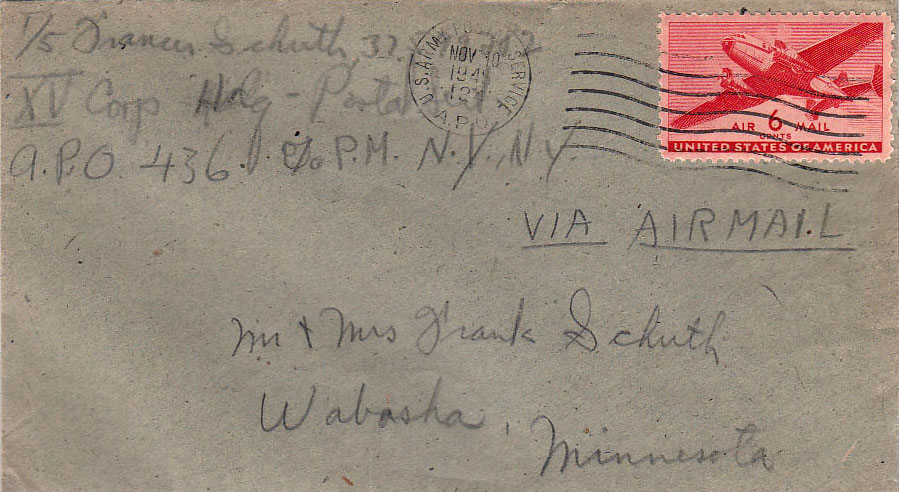 T/5 Francis Schuth, 37
XV Corp Hdq -
A.P.O. 436 c/o P.M. N.Y., N.Y.
U.S. ARMY SERVICE
NOV 10
A.P.O.
AIR 6 MAIL
CENTS
UNITED STATES OF AMERICA
VIA AIRMAIL
Mr & Mrs Frank Schuth
Wabasha,
Minnesota